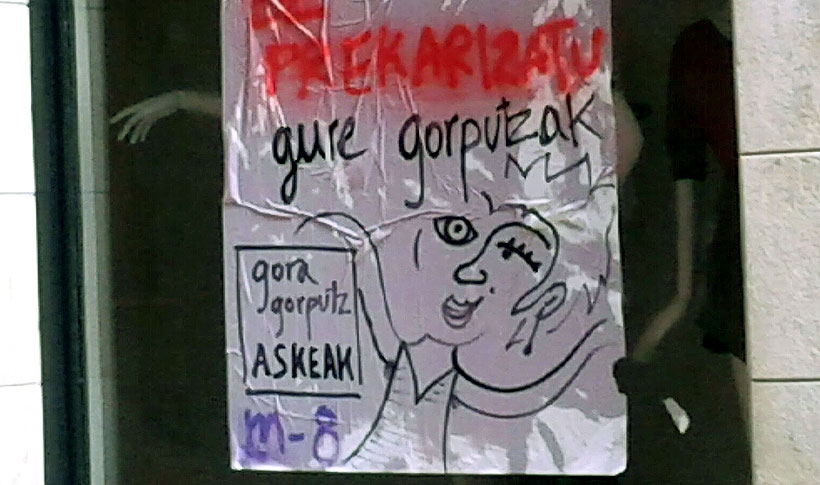 PREKARIZATU
gure gorputzak
gora
gorputz
ASKEAK
m-8